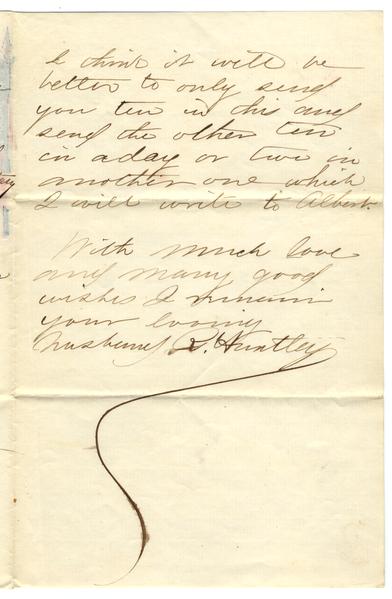 I think it will be
better to only send
you ten in this and
send the other ten
in a day or two in
another one which
I will write to Albert.
With much love
and many good
wishes I remain
your loving
husband, S. Huntley